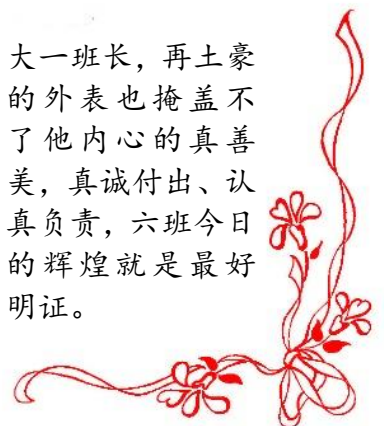 大一班长，再土豪
的外表也掩盖不
了他内心的真善
美，真诚付出、认
真负责，六班今日
的辉煌就是最好
明证。